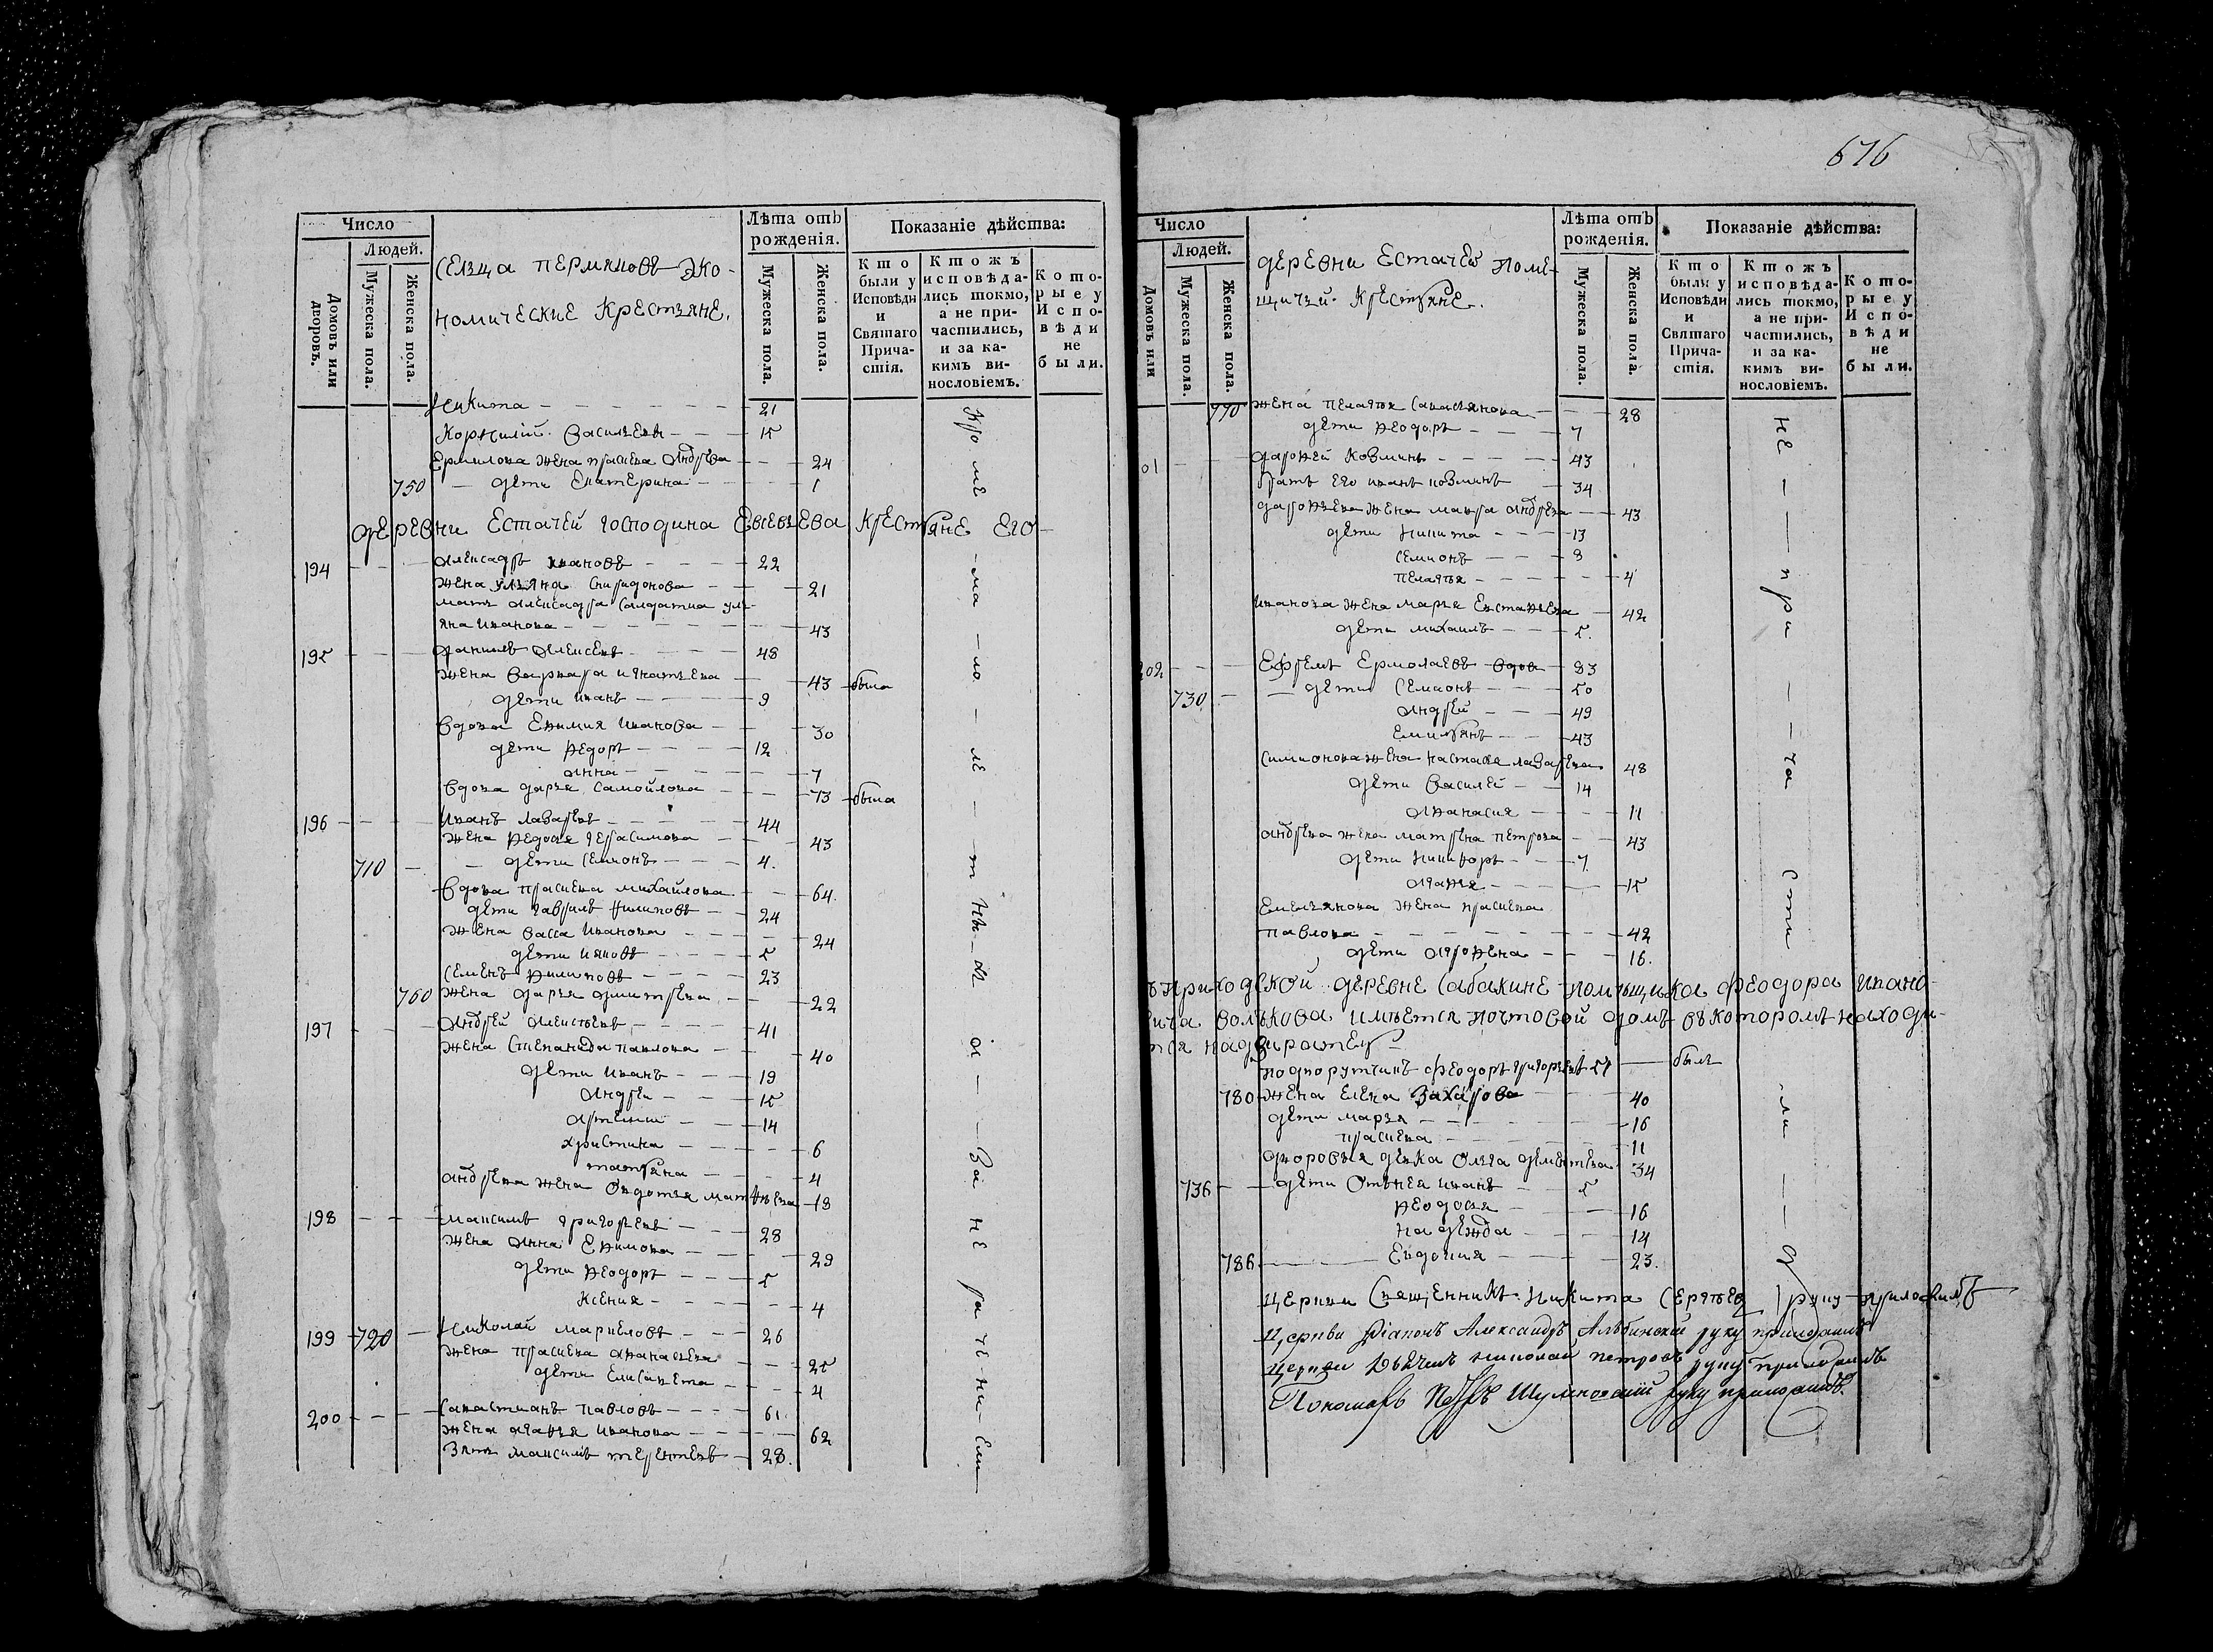 676
Число
Людей.
Домовъ или дворовъ.
Мужеска пола.
Женска пола.
Селца Пермяковъ эко-
номические крестьяне.
Лѣта отъ рожденія.
Мужеска пола.
Женска пола.
Показаніе дѣйства:
Кто были у Исповѣди и Святаго Причастія.
Ктожъ исповѣдались токмо, а не причастились, и за какимъ винословіемъ.
Которые у Исповѣди не были.
Никита 21
Корнилій Васильевъ 15
Ермилова жена праскева андрева 24
750 дети Екатерина 1
деревни Естачей господина Евсевьева крестьяне его
194 алексадръ ивановъ 22
жена ульяна спиридонова 21
мать алексадра салдатка уль-
яна иванова 43
195 данилъ алексевъ 48
жена варвара игнатьева 43 была
дети иванъ 9
вдова Ефимия иванова 30
дети федоръ 12
анна 7
вдова дарья самойлова 73 была
196 иванъ лазаревъ 44
жена федосья герасимова 43
710 дети семионъ 4.
вдова праскева михайлова 64.
дети гаврилъ филиповъ 24
жена васса иванова 24
дети яковъ 5
семенъ филиповъ 23
760 жена дарья дмитрева 22
197 андрей алексевъ 41
жена степанида павлова 40
дети иванъ 19
андреи 15
артемии 14
христина 6
татьяна 4
андрева жена овдотья матфеева 19
198 максимъ григорьевъ 28
жена анна Ефимова 29
дети федоръ 5
ксения 4
199 720 николай маркеловъ 26
жена праскева афанасьева 25
дети Елисавета 4
200 савастианъ павловъ 61
жена агафья иванова 62
зять максимъ терентевъ 28.
Кро ме ма ло ле т нѣ й за не ра че ни ем
Число
Людей.
Домовъ или
Мужеска пола.
Женска пола.
деревни Естачей поме-
щичьи крестьяне.
Лѣта отъ рожденія.
Мужеска пола.
Женска пола.
Показаніе дѣйства:
Кто были у Исповѣди и Святаго Причастія.
Ктожъ исповѣдались токмо, а не причастились, и за какимъ винословіемъ.
Которые у Исповѣди не были.
770 жена пелагья савастьянова 28
дети федоръ 7
01 дарофей козминъ 43
братъ его иванъ козминъ 34
дарофеева жена мавра андрева 43
дети никита 13
семионъ 9
пелагья 4
иванова жена марья Евстафьева 42
дети михаилъ 5.
202 Ефремъ Ермолаевъ вдов 83
730 дети семионъ 50
андрей 49
емильянъ 43
симионова жена настасья лазарева 48
дети василей 14
афанасия 11
андрева жена матрена петрова 43
дети никифоръ 7.
агафья 15
емельянова жена праскева
павлова 42
дети аграфена 16.
ъ приходской деревне Сабакине помѣщика феодора ивано-
вича волкова имѣется почтовой домъ въ которомъ находи-
тся надзиратель
подпорутчикъ феодоръ григорьевъ 57 былъ
780 жена елена захарова 40
дети марья 16
праскева 11
дворовыя девка ольга дементева 34
736 дети отъ нея иванъ 5
феодосия 16
надежда 14
786 Евдокия 23.
не при ча сти ли
церкви священникъ никита сергѣевъ руку приложилъ
церкви діаконъ Александръ Альбинский руку приложилъ
церкви дьячекъ николай петровъ руку приложилъ
Пономарь Петръ Шумковский руку приложилъ